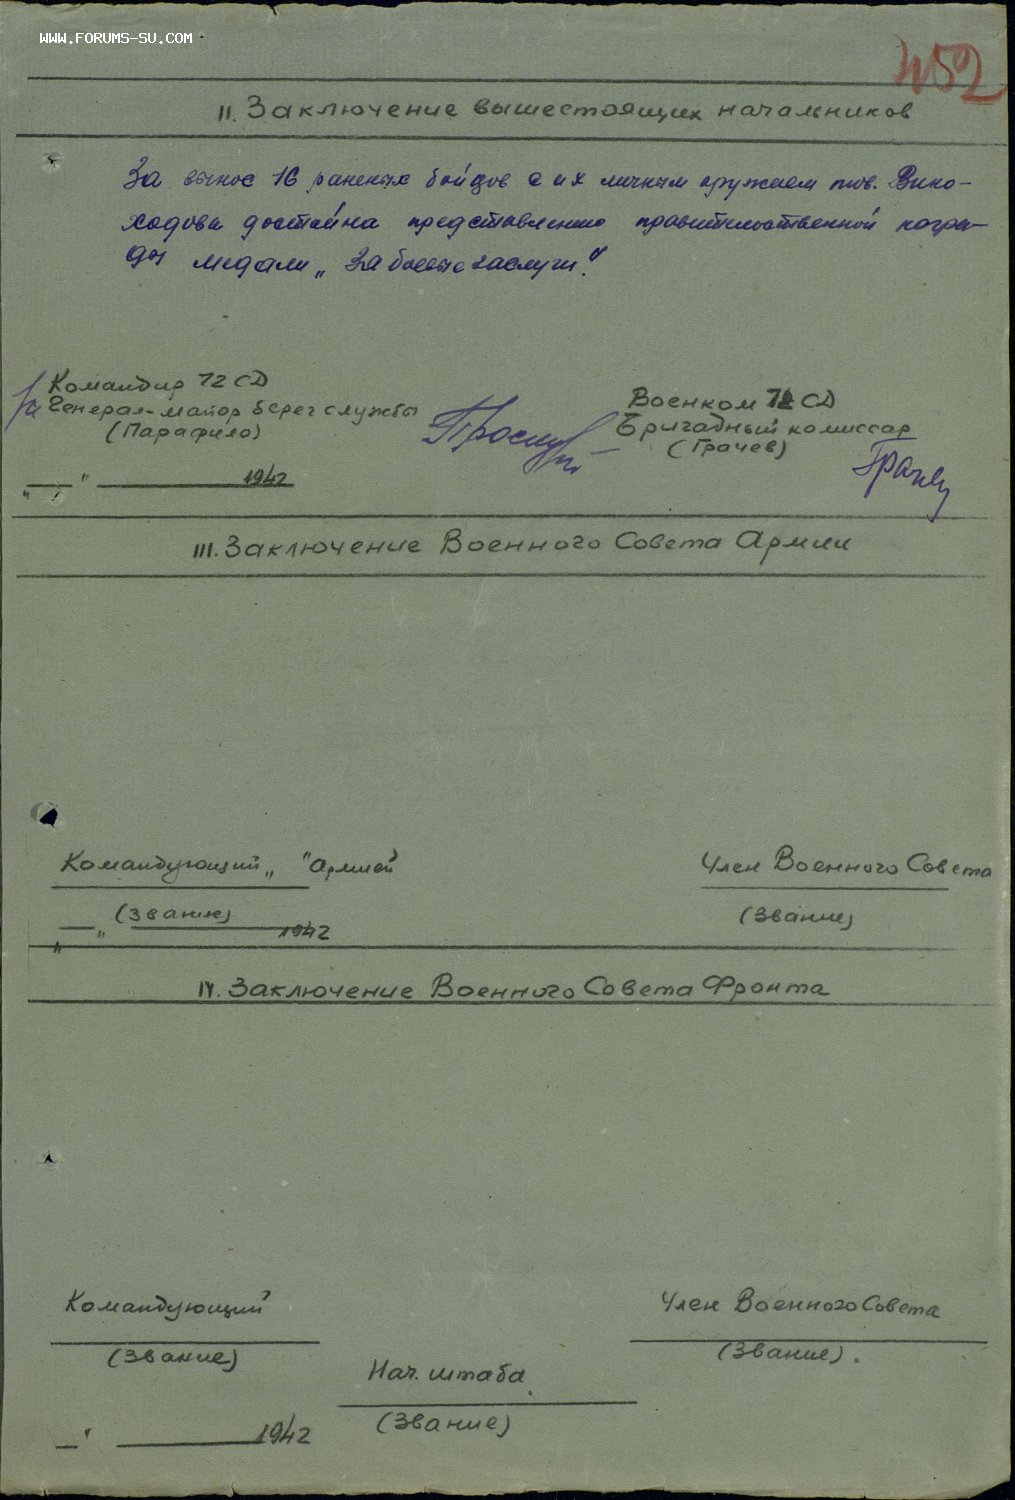 WWW.FORUMS-SU.COM
452
II. Заключение вышестоящих начальников
За вынос 16 раненых бойцов с их личным оружием тов. Вино-
ходова достойна представлению правительственной награ-
ды медали „За боевые заслуги."
Командир 72 СД
За Генерал-майор берег службы
(Парафило)
„ " 1942
Военком 72 СД
Бригадный комиссар
(Грачев)
Грачев
III. Заключение Военного Совета Армии
Командующий „ " Армией
(Звание)
„ " 1942
Член Военного Совета
(Звание)
IV. Заключение Военного Совета Фронта
Командующий
(Звание)
Член Военного Совета
(Звание).
Нач. штаба
(Звание)
" 1942